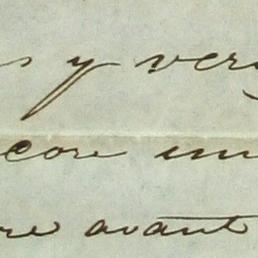 s y verr
core un
re avant